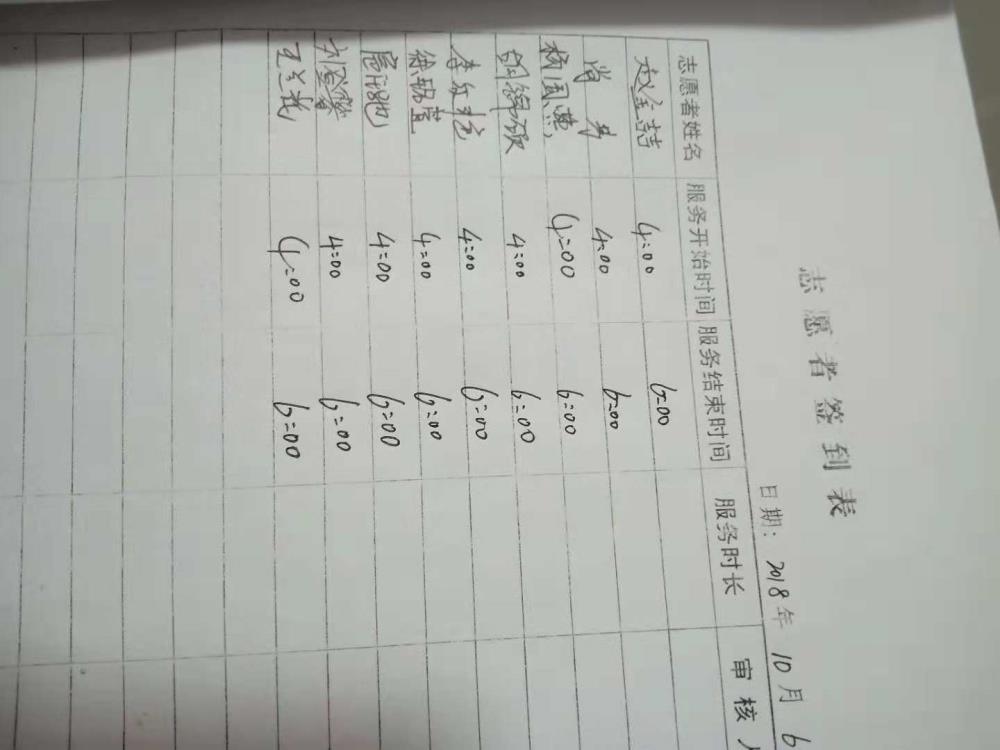 志愿者签到表
日期：2018年10月6
志愿者姓名 服务开始时间 服务结束时间 服务时长 审核人
赵金喆 4:00 6:00
肖 4:00 6:00
杨国燕 4:00 6:00
4:00 6:00
李 4:00 6:00
徐 萱 4:00 6:00
4:00 6:00
刘 4:00 6:00
王兰 4:00 6:00